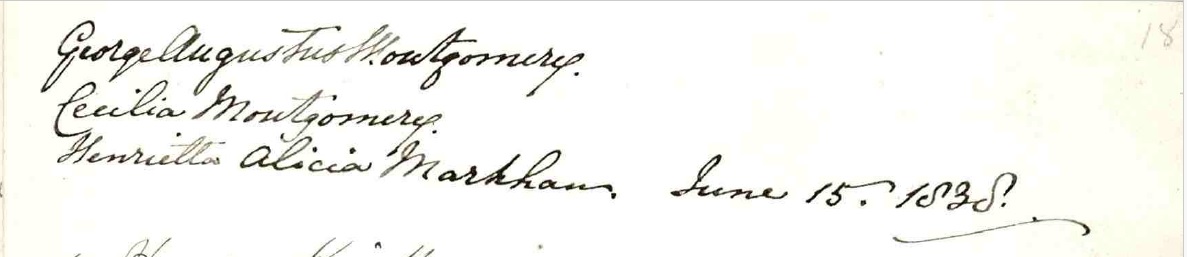 18
George Augustus Montgomery.
Cecilia Montgomery.
Henrietta Alicia Markham. June 15. 1838.